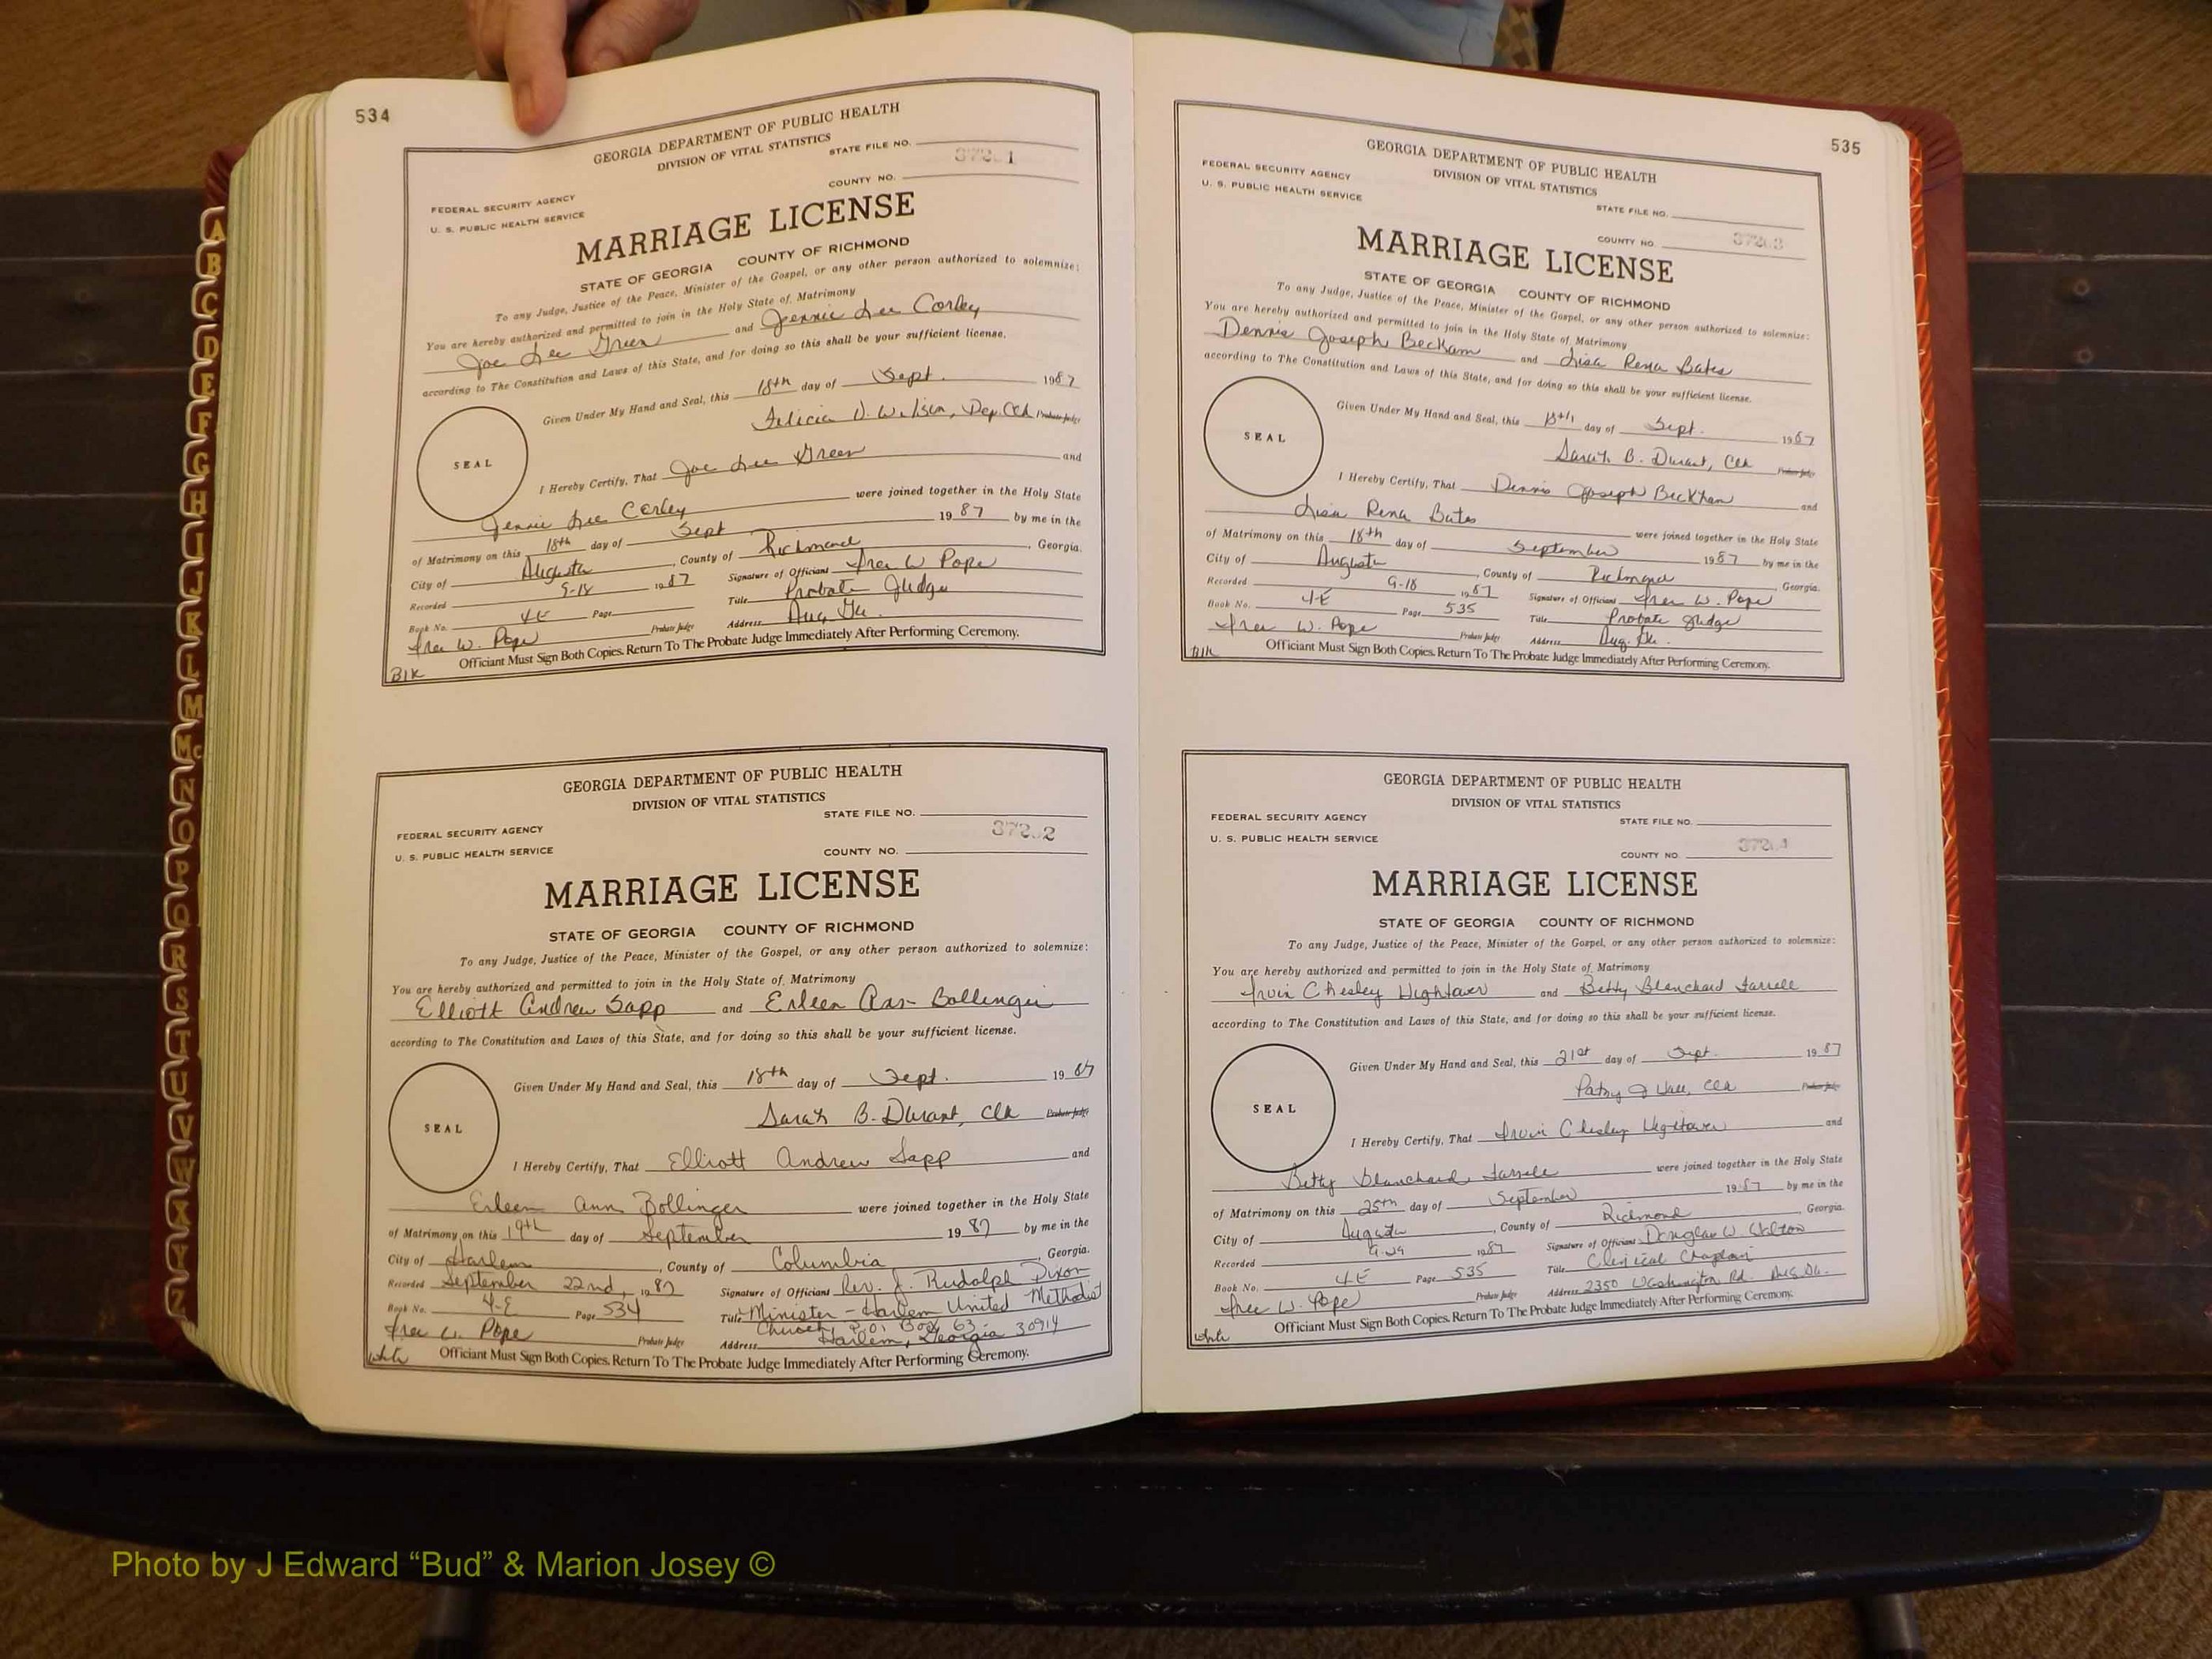 534
GEORGIA DEPARTMENT OF PUBLIC HEALTH
DIVISION OF VITAL STATISTICS
STATE FILE NO.
FEDERAL SECURITY AGENCY
COUNTY NO.
U. S. PUBLIC HEALTH SERVICE
MARRIAGE LICENSE
STATE OF GEORGIA COUNTY OF RICHMOND
To any Judge, Justice of the Peace, Minister of the Gospel, or any other person authorized to solemnize:
You are hereby authorized and permitted to join in the Holy State of Matrimony
Joe Lee Green and Jennie Lee Corley
according to The Constitution and Laws of this State, and for doing so this shall be your sufficient license.
Given Under My Hand and Seal, this 18th day of Sept. 1987
Felicia D. Wilson, Dep. Clk Probate Judge
SEAL
I Hereby Certify, That Joe Lee Green and
Jennie Lee Corley were joined together in the Holy State
of Matrimony on this 18th day of Sept 1987 by me in the
City of Augusta, County of Richmond, Georgia.
Recorded 9-18 1987 Signature of Officiant W Pope
Book No. 4E Page Title Probate Judge
W. Pope Probate Judge Address Aug. Ga.
Officiant Must Sign Both Copies. Return To The Probate Judge Immediately After Performing Ceremony.
Blk
GEORGIA DEPARTMENT OF PUBLIC HEALTH
DIVISION OF VITAL STATISTICS
STATE FILE NO.
FEDERAL SECURITY AGENCY
U. S. PUBLIC HEALTH SERVICE
COUNTY NO.
MARRIAGE LICENSE
STATE OF GEORGIA COUNTY OF RICHMOND
To any Judge, Justice of the Peace, Minister of the Gospel, or any other person authorized to solemnize:
You are hereby authorized and permitted to join in the Holy State of Matrimony
Elliott Andrew Sapp and Erleen Ann Bollinger
according to The Constitution and Laws of this State, and for doing so this shall be your sufficient license.
Given Under My Hand and Seal, this 18th day of Sept. 1987
Sarah B. Durant, Clk Probate Judge
SEAL
I Hereby Certify, That Elliott Andrew Sapp and
Erleen Ann Bollinger were joined together in the Holy State
of Matrimony on this 19th day of September 1987 by me in the
City of Harlem, County of Columbia, Georgia.
Recorded September 22nd, 1987 Signature of Officiant Rev. J. Rudolph Dixon
Book No. 4-E Page 534 Title Minister - Harlem United Methodist
Church, P.O. Box 63
W. Pope Probate Judge Address Harlem, Georgia 30914
Officiant Must Sign Both Copies. Return To The Probate Judge Immediately After Performing Ceremony.
white
535
GEORGIA DEPARTMENT OF PUBLIC HEALTH
DIVISION OF VITAL STATISTICS
FEDERAL SECURITY AGENCY
U. S. PUBLIC HEALTH SERVICE
STATE FILE NO.
COUNTY NO.
MARRIAGE LICENSE
STATE OF GEORGIA COUNTY OF RICHMOND
To any Judge, Justice of the Peace, Minister of the Gospel, or any other person authorized to solemnize:
You are hereby authorized and permitted to join in the Holy State of Matrimony
Dennis Joseph Beckham and Lisa Rena Bates
according to The Constitution and Laws of this State, and for doing so this shall be your sufficient license.
Given Under My Hand and Seal, this 18th day of Sept. 1987
Sarah B. Durant, Clk Probate Judge
SEAL
I Hereby Certify, That Dennis Joseph Beckham and
Lisa Rena Bates were joined together in the Holy State
of Matrimony on this 18th day of September 1987 by me in the
City of Augusta, County of Richmond, Georgia.
Recorded 9-18 1987 Signature of Officiant W. Pope
Book No. 4E Page 535 Title Probate Judge
W. Pope Probate Judge Address Aug. Ga.
Officiant Must Sign Both Copies. Return To The Probate Judge Immediately After Performing Ceremony.
GEORGIA DEPARTMENT OF PUBLIC HEALTH
DIVISION OF VITAL STATISTICS
FEDERAL SECURITY AGENCY
STATE FILE NO.
U. S. PUBLIC HEALTH SERVICE
COUNTY NO.
MARRIAGE LICENSE
STATE OF GEORGIA COUNTY OF RICHMOND
To any Judge, Justice of the Peace, Minister of the Gospel, or any other person authorized to solemnize:
You are hereby authorized and permitted to join in the Holy State of Matrimony
Irvin Chesley Hightower and Betty Blanchard
according to The Constitution and Laws of this State, and for doing so this shall be your sufficient license.
Given Under My Hand and Seal, this 21st day of Sept. 1987
Clk Probate Judge
SEAL
I Hereby Certify, That Irvin Chesley Hightower and
Betty Blanchard were joined together in the Holy State
of Matrimony on this 25th day of September 1987 by me in the
City of Augusta, County of Richmond, Georgia.
Recorded 1987 Signature of Officiant Douglas W.
Book No. 4E Page 535 Title Clinical Chaplain
W. Pope Probate Judge Address 2350 Washington Rd. Aug. Ga.
Officiant Must Sign Both Copies. Return To The Probate Judge Immediately After Performing Ceremony.
white
A
B
C
D
E
F
G
H
I
J
K
L
M
Mc
N
O
P
Q
R
S
T
U
V
W
X
Y
Z
Photo by J Edward “Bud” & Marion Josey ©